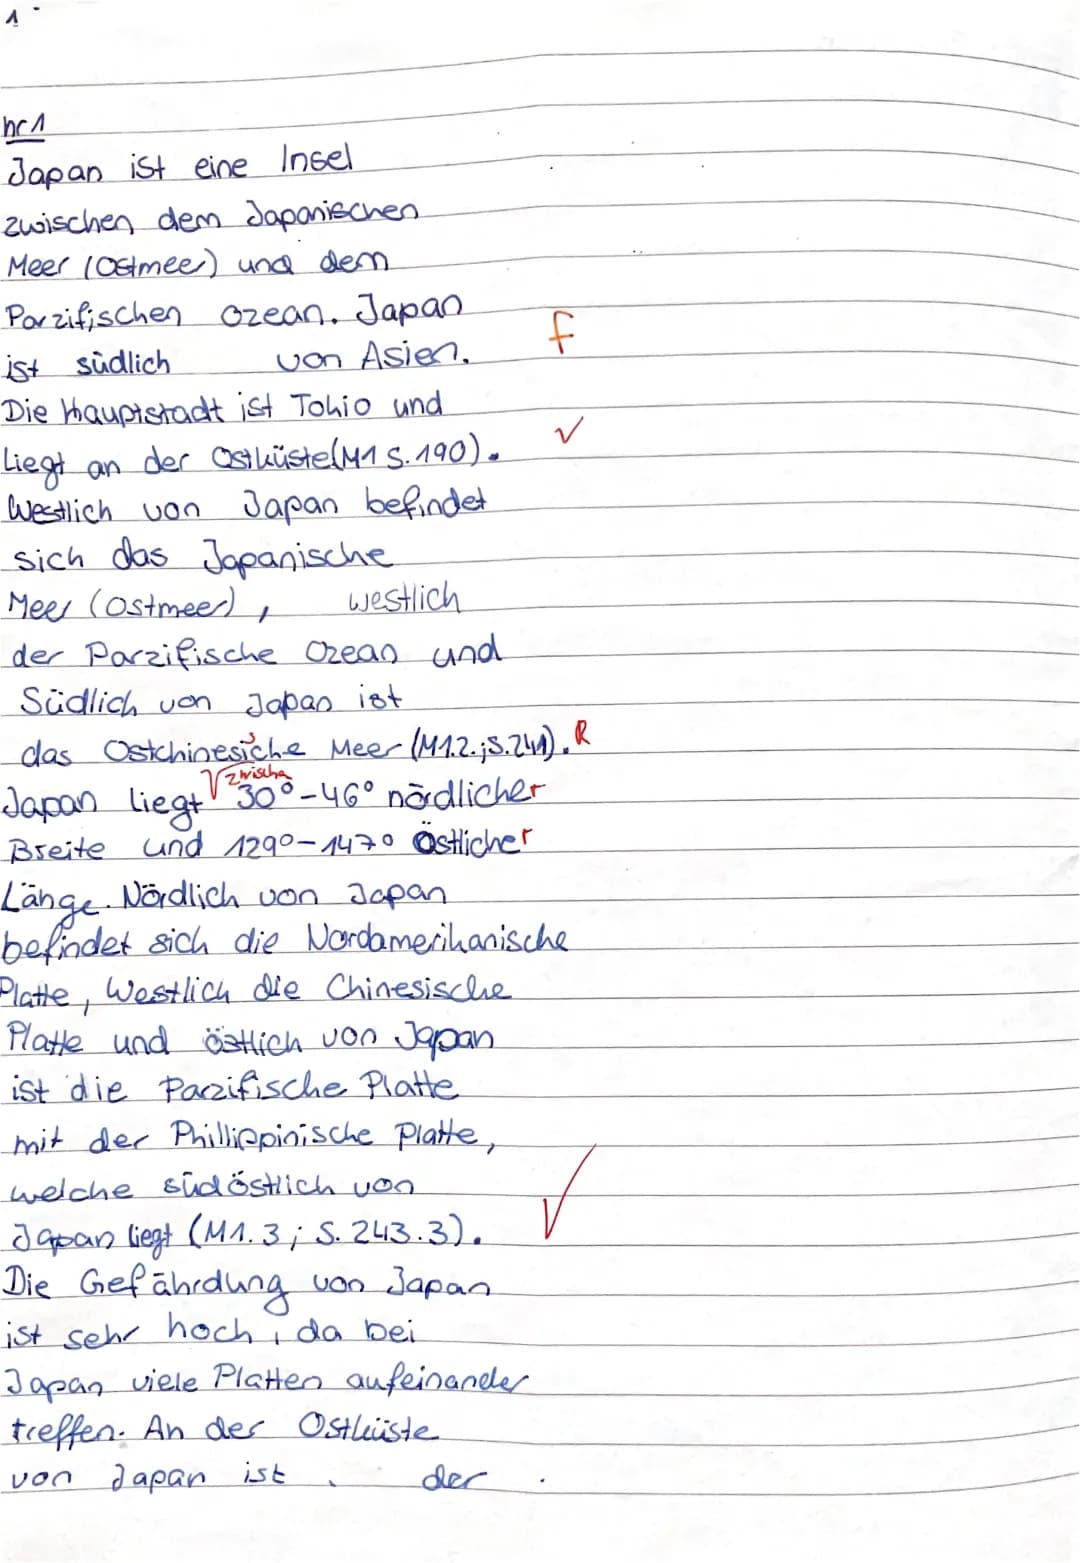 1
nr 1
Japan ist eine Insel
zwischen dem Japanischen
Meer (Ostmeer) und dem
Parzifischen Ozean. Japan
ist südlich von Asien. f
Die Hauptstadt ist Tokio und
Liegt an der Ostküste(M1 S.190). ✓
Westlich von Japan befindet
sich das Japanische
Meer (Ostmeer), westlich
der Parzifische Ozean und
Südlich von Japan ist
das Ostchinesiche Meer (M1.2.;S.241). R
zwischen
Japan liegt 30°-46° nördlicher
Breite und 129°-147° Östlicher
Länge. Nördlich von Japan
befindet sich die Nordamerikanische
Platte, Westlich die Chinesische
Platte und östlich von Japan
ist die Parzifische Platte
mit der Phillippinische Platte,
welche südöstlich von
Japan liegt (M1.3; S. 243.3). ✓
Die Gefährdung von Japan
ist sehr hoch, da bei
Japan viele Platten aufeinander
treffen. An der Ostküste
von Japan ist der